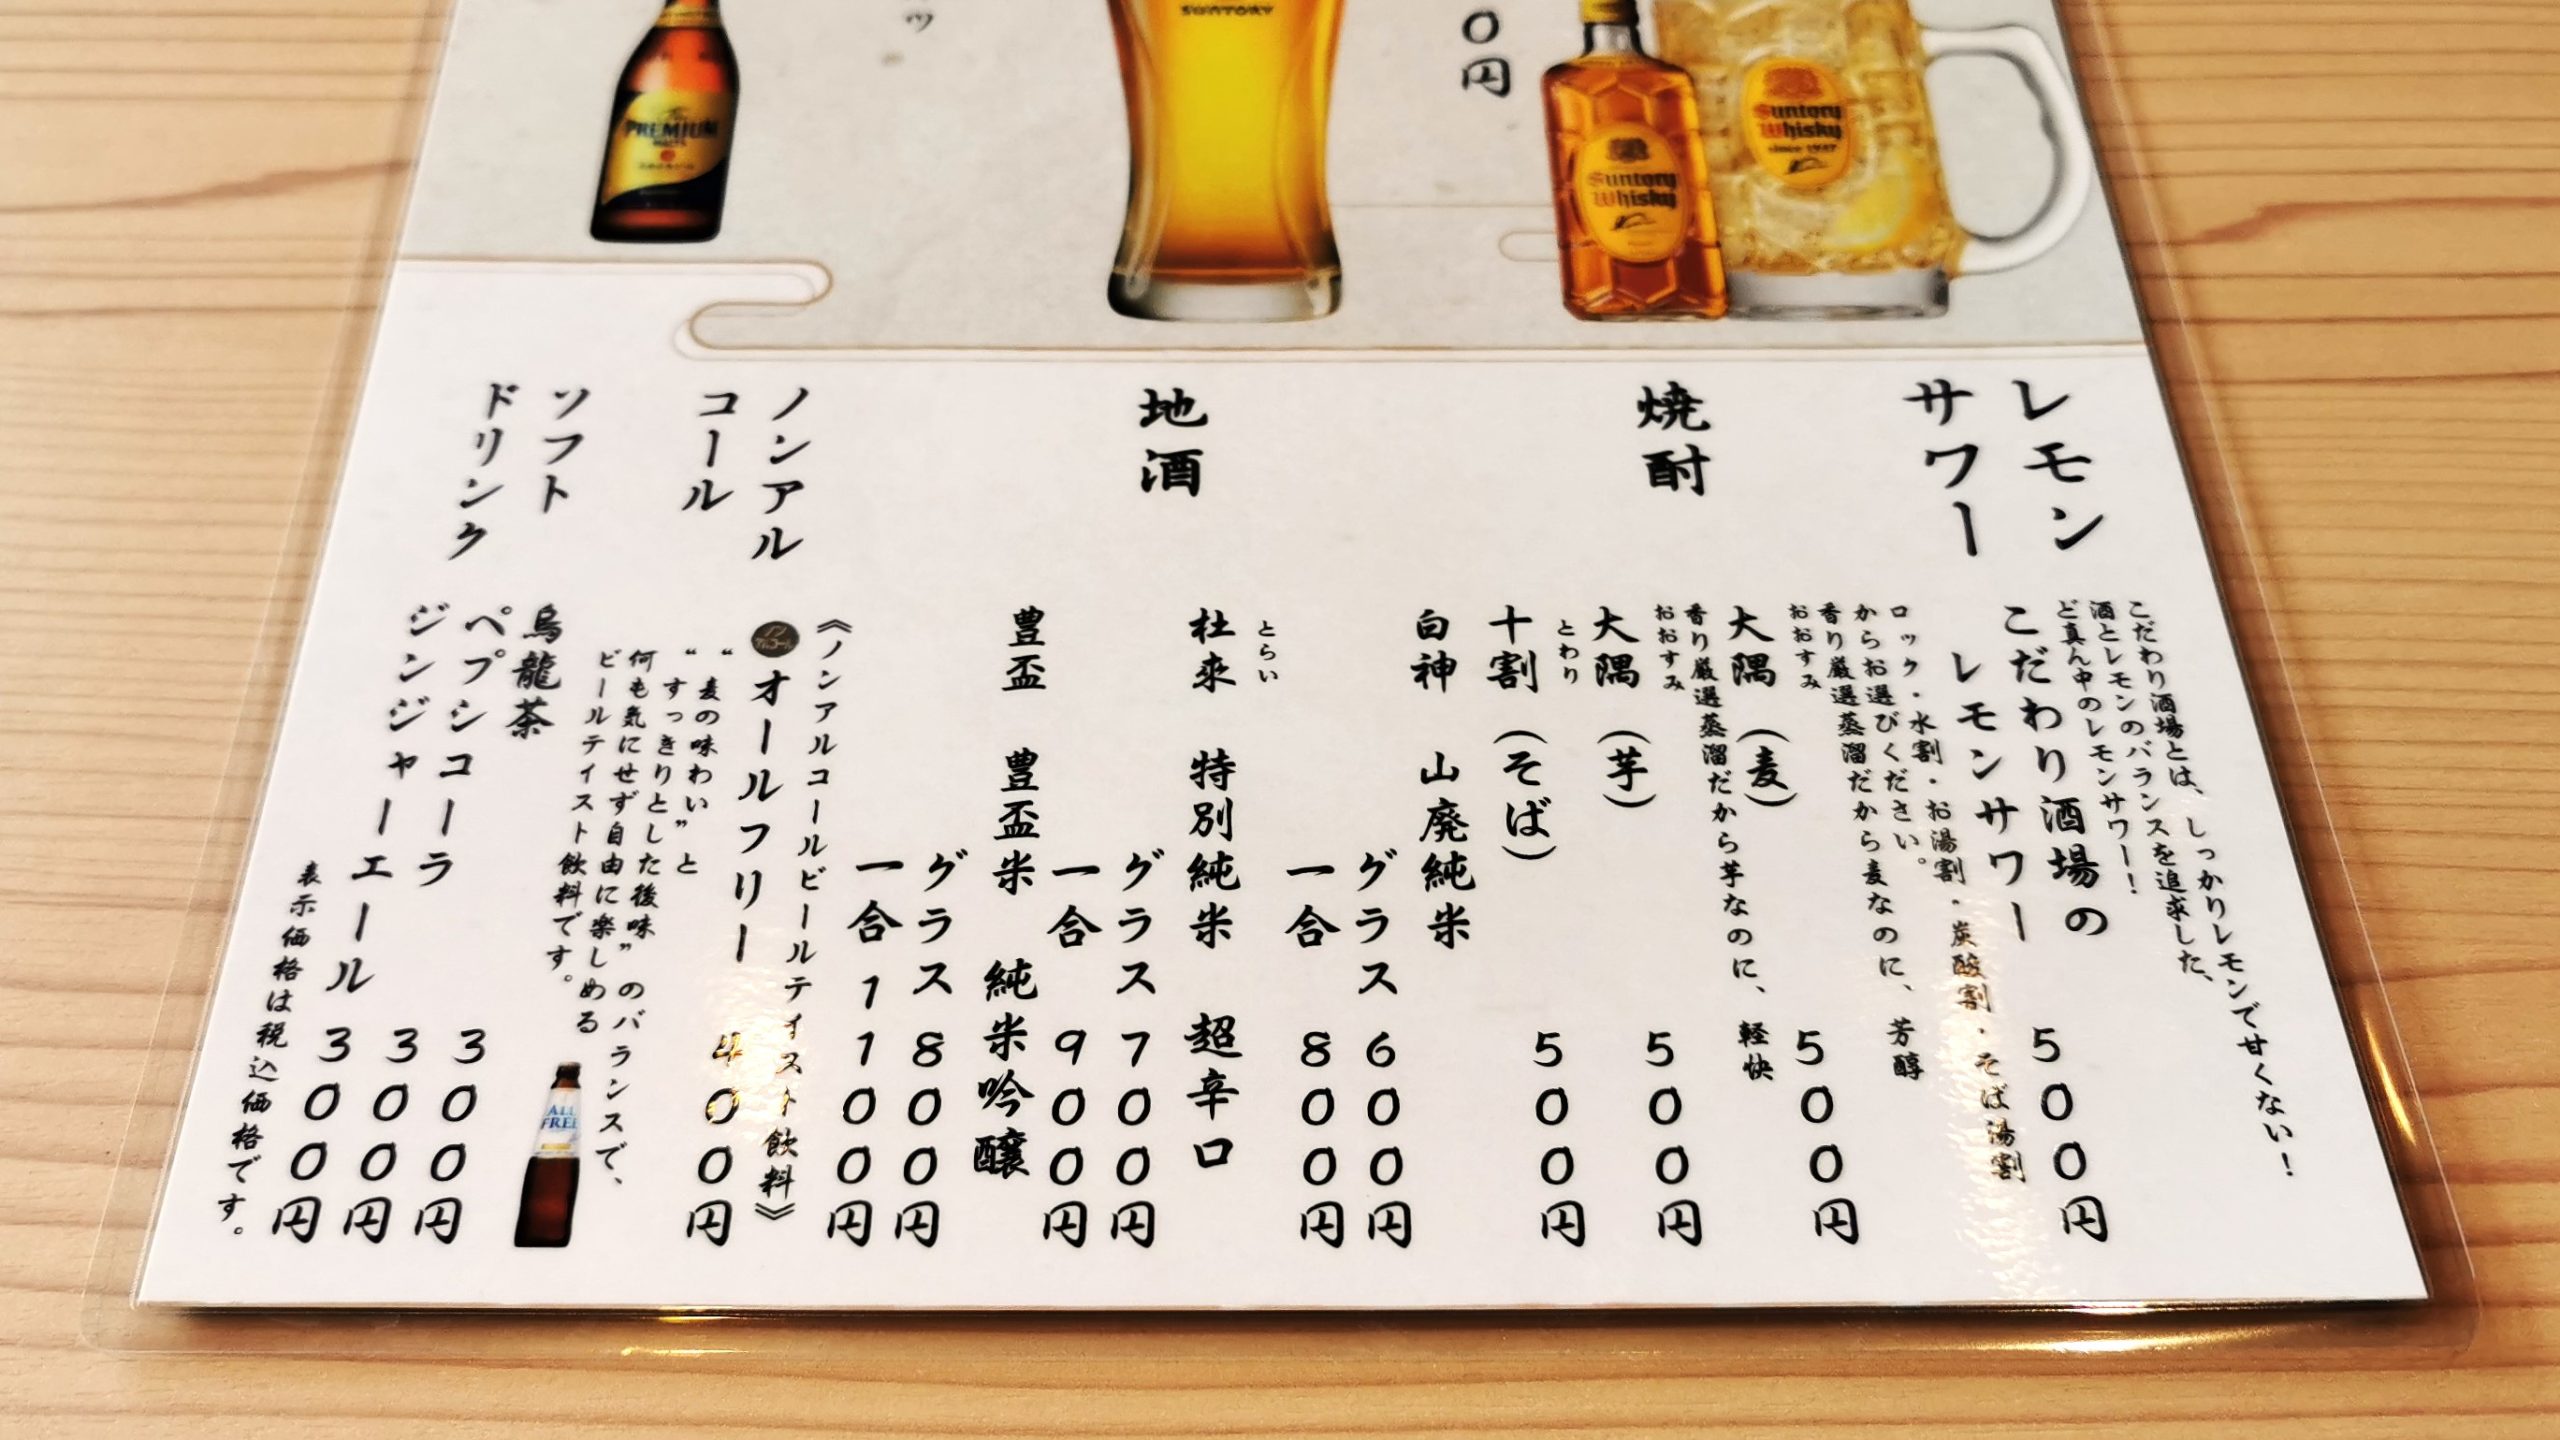 SUNTORY
The
PREMIUM
MALT'S
0円
Suntory
Whisky
Suntory
Whisky
since 1937
レモン
サワー
こだわり酒場とは、しっかりレモンで甘くない!
酒とレモンのバランスを追求した、
ど真ん中のレモンサワー!
こだわり酒場の
レモンサワー 500円
焼酎
ロック・水割・お湯割・炭酸割・そば湯割
からお選びください。
香り厳選蒸溜だから麦なのに、芳醇
おおすみ
大隅(麦) 500円
香り厳選蒸溜だから芋なのに、軽快
おおすみ
大隅(芋) 500円
とわり
十割(そば) 500円
地酒
白神 山廃純米
グラス 600円
一合 800円
とらい
杜來 特別純米 超辛口
グラス 700円
一合 900円
豊盃 豊盃米 純米吟醸
グラス 800円
一合 1100円
ノンアル
コール
《ノンアルコールビールテイスト飲料》
ノンアルコール
オールフリー 400円
“麦の味わい”と
“すっきりとした後味”のバランスで、
何も気にせず自由に楽しめる
ビールテイスト飲料です。
ALL
FREE
ソフト
ドリンク
烏龍茶 300円
ペプシコーラ 300円
ジンジャーエール 300円
表示価格は税込価格です。